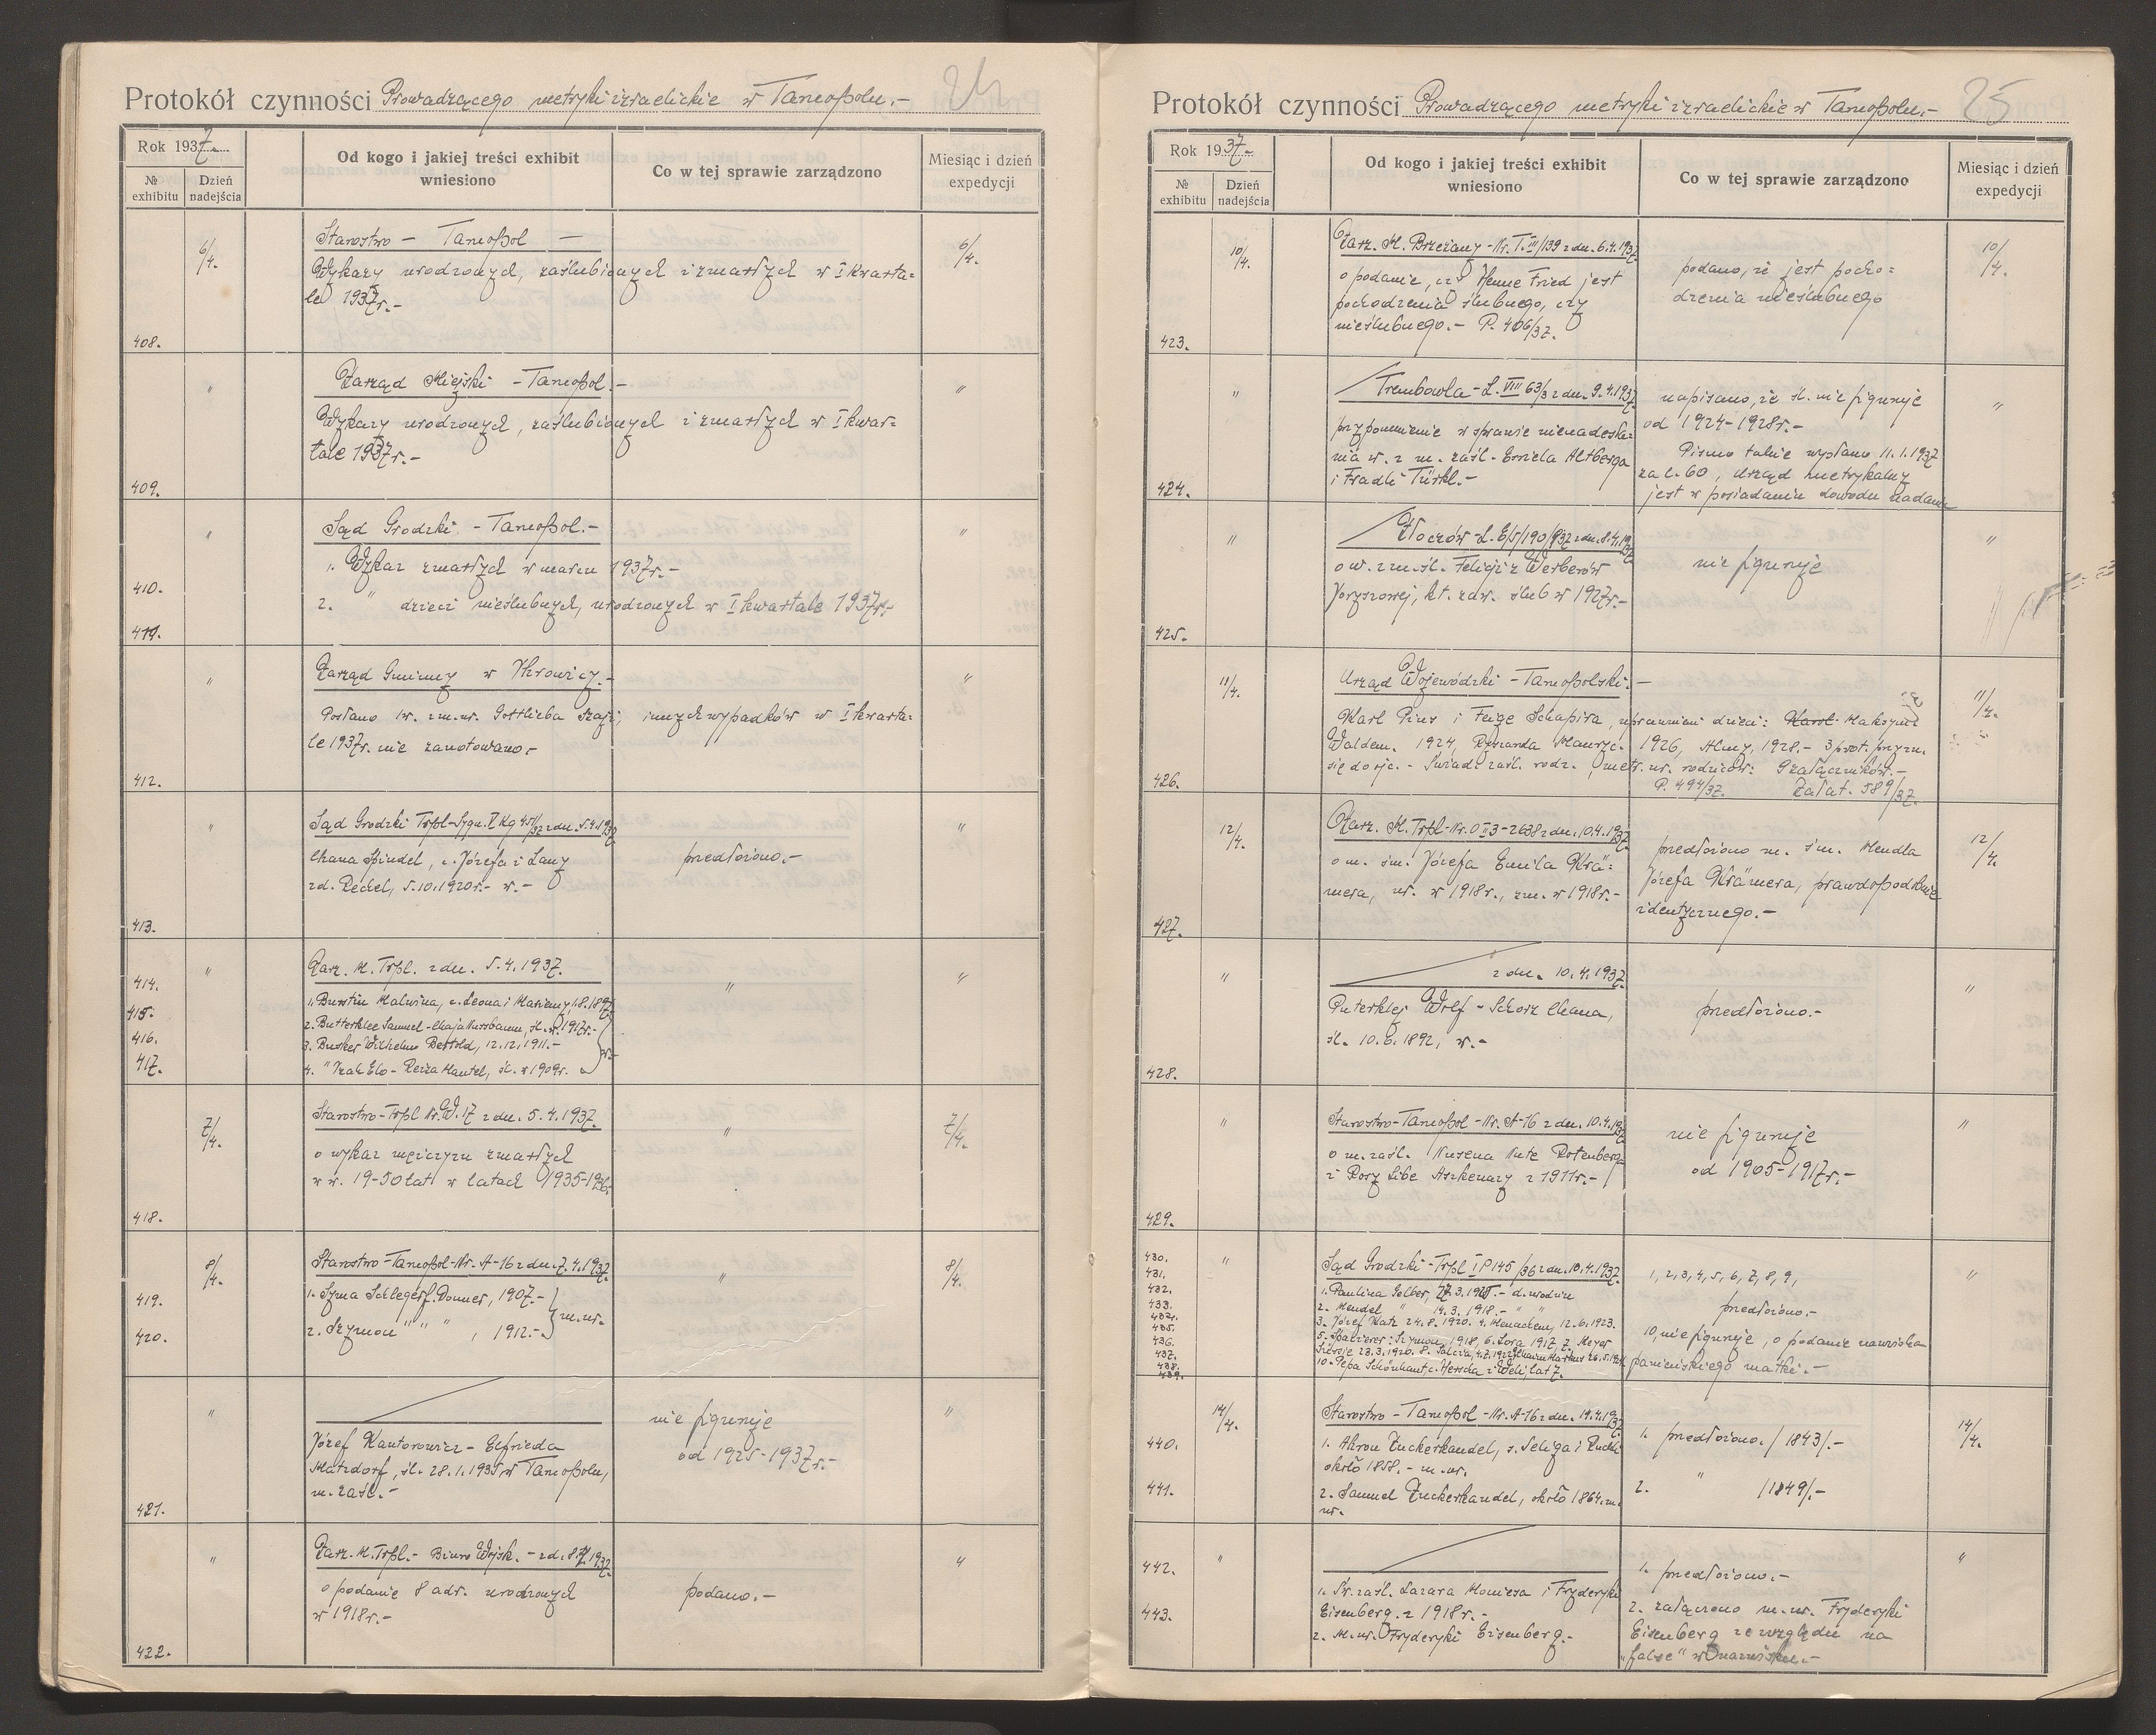 Protokół czynności Prowadzącego metryki izraelickie w Tarnopolu.-
24
Rok 1937.-
№ exhibitu
Dzień nadejścia
Od kogo i jakiej treści exhibit wniesiono
Co w tej sprawie zarządzono
Miesiąc i dzień expedycji
408.
6/4.
Starostwo - Tarnopol -
Wykazy urodzonych, zaślubionych i zmarłych w I kwarta=
le 1937r.-
6/4.
409.
"
Zarząd Miejski - Tarnopol.-
Wykazy urodzonych, zaślubionych i zmarłych w I kwar=
tale 1937r.-
"
410.
411.
"
Sąd Grodzki - Tarnopol.-
1. Wykaz zmarłych w marcu 1937r.-
2. " dzieci nieślubnych, urodzonych w I kwartale 1937r.-
"
412.
"
Zarząd Gminny w Ihrowicy.-
Posłano św. zm. w. Gottlieba innych wypadków w I kwarta=
le 1937r. nie zanotowano.-
"
413.
"
Sąd Grodzki Trpl-Sygn. I Kg 451/32 z dn. 5.4.1937.
Chana Spindel, c. Józefa i Lany
zd. Reckel, 5.10.1920r.- w.-
przedłożono.-
"
414.
415.
416.
417.
"
Zarz. M. Trpl. z dn. 5.4.1937.
1. Burstin Malwina, c. Leona i Marjemy, 1.8.1897
2. Butterklee Samuel - Chaja Nussbaum, śl. w. 1917r.-
3. Busker Wilhelm Bertold, 12.12.1911.-
4. " Izak Elo - Reiza Mantel, śl. w 1909r.
w.-
"
"
418.
7/4.
Starostwo-Trpl Nr. W. 17 z dn. 5.4.1937.
o wykaz mężczyzn zmarłych
w w. 19-50 lat w latach 1935-1936.
"
7/4.
419.
420.
8/4.
Starostwo-Tarnopol-Nr. A-16 z dn. 7.4.1937.
1. Szma Schleger f. Donner, 1907.-
2. Szymon " " " , 1912.-
m. ur.
"
8/4.
421.
"
Józef Kantorowicz - Elfrieda
Matzdorf, śl. 28.1.1935 w Tarnopolu,
m. zaśl.-
nie figuruje
od 1925-1937r.-
"
422.
"
Zarz. M. Trpl.- Biuro Wojsk. - z d. 8.4.1937.
o podanie 8 adr. urodzonych
w 1918r.-
podano.-
"
Protokół czynności Prowadzącego metryki izraelickie w Tarnopolu.-
25
Rok 1937.-
№ exhibitu
Dzień nadejścia
Od kogo i jakiej treści exhibit wniesiono
Co w tej sprawie zarządzono
Miesiąc i dzień expedycji
423.
10/4.
Zarz. M. Brzeżany - Nr. T. III/139 z dn. 6.4.1937.
o podanie, czy Henne Fried jest
pochodzenia ślubnego, czy
nieślubnego.- P. 406/37.
podano, że jest pocho=
dzenia nieślubnego
10/4.
424.
"
Trembowla - L. VIII 63/3 z dn. 9.4.1937.
przypomnienie w sprawie nienadesła=
nia w. z m. zaśl. Altberga
i Fradli Türkl.-
napisano, że śl. nie figuruje
od 1924-1928r.-
Pismo takie wysłano 11.1.1937
za l. 60, urząd metrykalny
jest w posiadaniu dowodu nadania
"
425.
"
Złoczów L. E/5/190/37 z dn. 8.4.1937.
o w. z m. śl. Felicji z Werberów
kt. zaw. ślub w 1927r.-
nie figuruje
"
426.
11/4.
Urząd Wojewódzki - Tarnopolski.-
Karl Pius i Feige Schapira, uprawnieni dzieci: Karol Maksym.
Waldem. 1924, Ryszarda Mauryc. 1926, Almy, 1928.- 3 prot. przyzn.
się do ojc.- Świad. zaśl. rodz., metr. ur. rodziców. 9 załączników.-
P. 494/37. Załat. 589/37.
11/4.
427.
12/4.
Zarz. M. Trpl - Nr. O II 3-2638 z dn. 10.4.1937.
o m. śm. Józefa Emila Krä=
mera, ur. w 1918r., zm. w 1918r.-
przedłożono m. śm. Mendla
Józefa Krämera, prawdopodobnie
identycznego.-
12/4.
428.
"
z dn. 10.4.1937.
Puterklej Wolf - Schorz Chana,
śl. 10.6.1892, w.-
przedłożono.-
"
429.
"
Starostwo-Tarnopol - Nr. A-16 z dn. 10.4.1937.
o m. zaśl. Nusena Nute Rotenberga
i Rozy Libe Aszkenazy z 1911r.-
nie figuruje
od 1905-1917r.-
"
430.
431.
432.
433.
434.
435.
436.
437.
438.
439.
"
Sąd Grodzki - Trpl I P 145/36 z dn. 10.4.1937.
1. Paulina Gelber, - d. urodzin
2. Mendel " 14.3.1918.- " "
3. Józef Katz 24.8.1920. 4. Menachem, 12.6.1923.
5. Szymon, 1918, 6. Lora 1917, 7. Meyer
23.3.1920. 8. 26.5.1921.
10. Pepa Schönhaut c. Herscha i lat 7.
1, 2, 3, 4, 5, 6, 7, 8, 9,
przedłożono.-
10, nie figuruje, o podanie nazwiska
panieńskiego matki.-
"
440.
441.
14/4.
Starostwo - Tarnopol - Nr. A-16 z dn. 14.4.1937.
1. Ahron Zuckerkandel, s. Seliga i Ruchli
około 1858.- m. ur.
2. Samuel Zuckerkandel, około 1864. m.
ur.
1. przedłożono. /1843/.-
2. " /1849/.-
14/4.
442.
443.
"
1. Św. zaśl. Lazara Moniesa i Fryderyki
Eisenberg z 1918r.-
2. M. ur. Fryderyki Eisenberg.-
1. przedłożono.-
2. załączono m. ur. Fryderyki
Eisenberg ze względu na
"false" w nazwisku.-
"